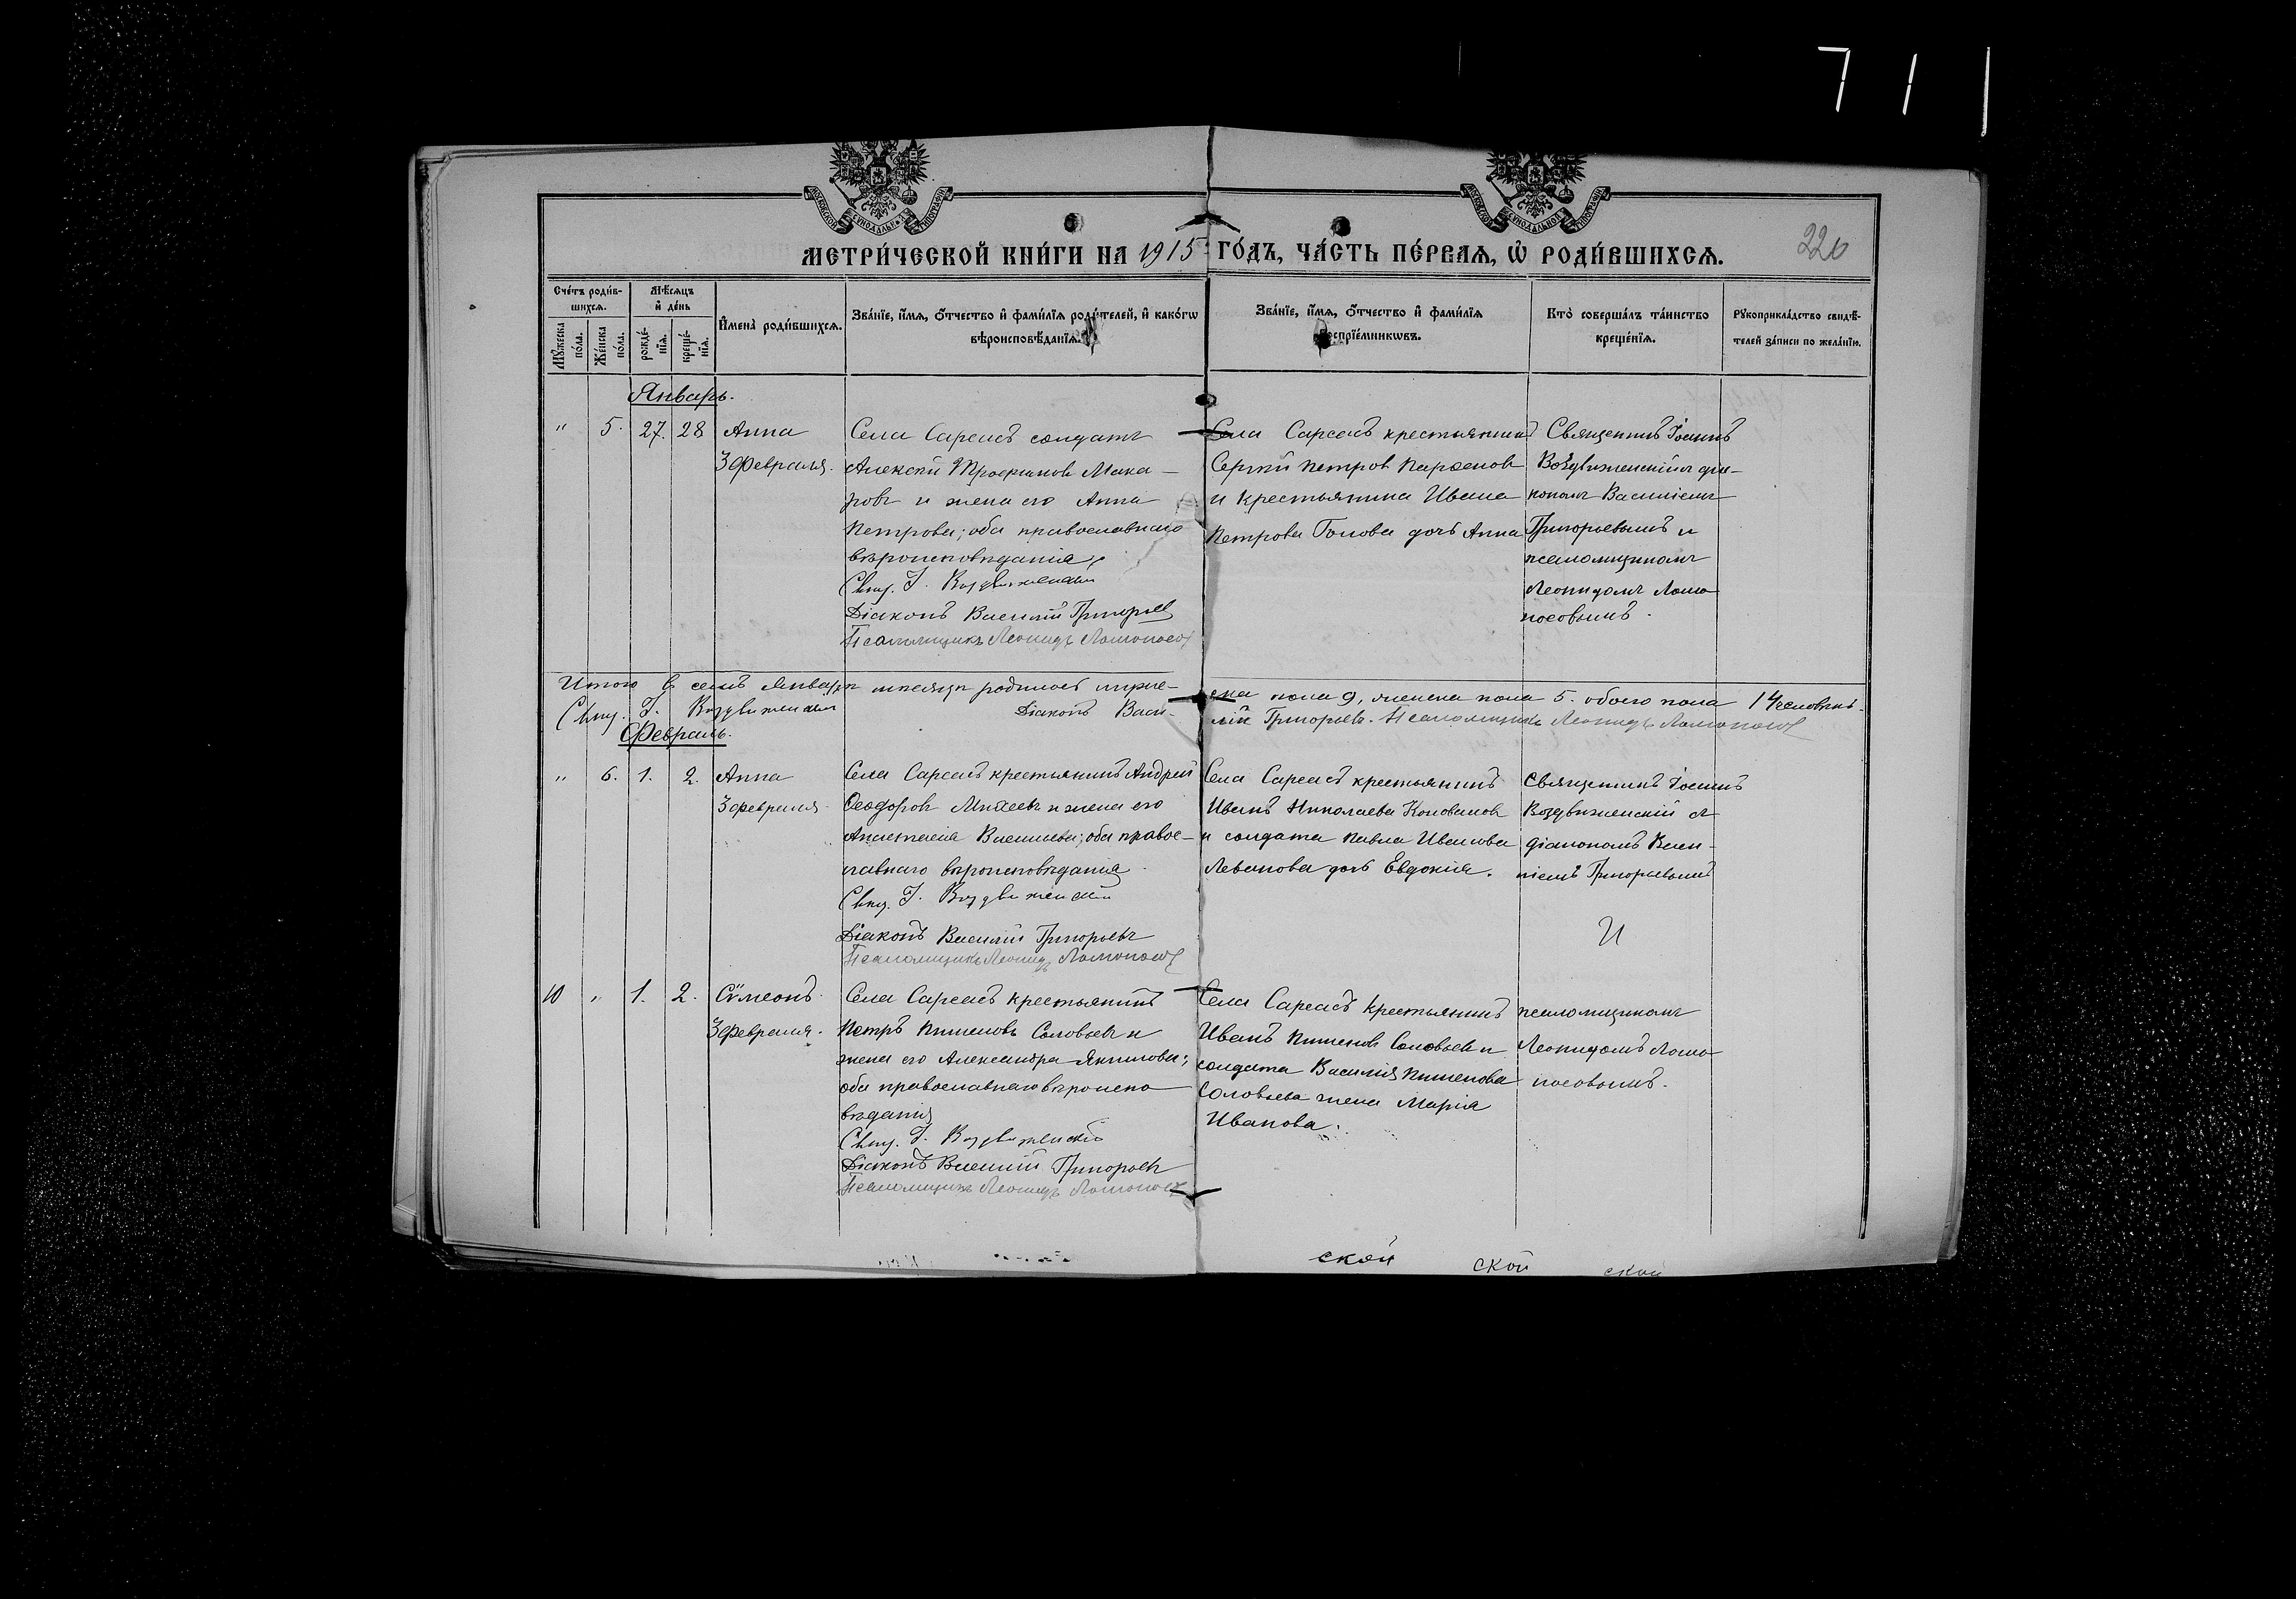 711
МЕТРИ́ЧЕСКОЙ КНИ́ГИ НА 1915 ГО́ДЪ, ЧА́СТЬ ПЕ́РВАЯ, Ѽ РОДИ́ВШИХСЯ.
220
Сче́тъ роди́в-
шихся.
Мꙋ́жеска по́ла.
Же́нска по́ла.
Мѣ́сяцъ
и де́нь
рожде́-
нїя.
креще́-
нїя.
Имена̀ роди́вшихся.
Зва́нїе, и́мя, ѻ́тчество и фами́лїя роди́телей, и како́гѡ
вѣроисповѣ́данїя.
Зва́нїе, и́мя, ѻ́тчество и фами́лїя
воспрїе́мникѡвъ.
Кто̀ соверша́лъ та́инство
креще́нїя.
Рꙋкоприкла́дство свидѣ́-
телей за́писи по жела́нїю.
Январь.
" 5. 27. 28 Анна
3 Февраля.
Села Сарсасъ солдатъ
Алексѣй Мака-
ровъ и жена его Анна
Петрова; оба православнаго
вѣроисповѣданія
Свящ. І. Воздвиженскій
Діаконъ Василій Григорьевъ
Псаломщикъ Леонидъ Ломоносовъ
Села Сарсасъ крестьянинъ
Сергѣй Петровъ Парѳеновъ
и крестьянина Ивана
Петрова дочь Анна
Священникъ Іоаннъ
Воздвиженскій съ діа-
кономъ Василіемъ
Григорьевымъ и
псаломщикомъ
Леонидомъ Ломо
носовымъ.
Итого въ семъ Январѣ мѣсяцѣ родилось муже-
ска пола 9, женска пола 5. обоего пола 14 человѣкъ.
Свящ. І. Воздвиженскій Діаконъ Васи-
лій Григорьевъ. Псаломщикъ Леонидъ Ломоносовъ
Февраль.
" 6. 1. 2. Анна
3 февраля
Села Сарсасъ крестьянинъ Андрей
Ѳеодоровъ Михеевъ и жена его
Анастасія Васильева; оба правос-
лавнаго вѣроисповѣданія
Свящ. І. Воздвиженскій
Діаконъ Василій Григорьевъ
Псаломщикъ Леонидъ Ломоносовъ
Села Сарсасъ крестьянинъ
Иванъ Николаевъ Коноваловъ
и солдата Павла Иванова
Леванова дочь Евдокія.
Священникъ Іоаннъ
Воздвиженскій съ
діакономъ Васи-
ліемъ Григорьевымъ
И
10 " 1. 2. Сѷмеонъ
3 февраля.
Села Сарсасъ крестьянинъ
Петръ Пименовъ Соловьевъ и
жена его Александра Якимова;
оба православнаго вѣроиспо
вѣданія
Свящ. І. Воздвиженскій
Діаконъ Василій Григорьевъ
Псаломщикъ Леонидъ Ломоносовъ
Села Сарсасъ крестьянинъ
Иванъ Пименовъ Соловьевъ и
солдата Василія Пименова
Соловьева жена Марія
Иванова.
псаломщикомъ
Леонидомъ Ломо
носовымъ.
ской ской ской